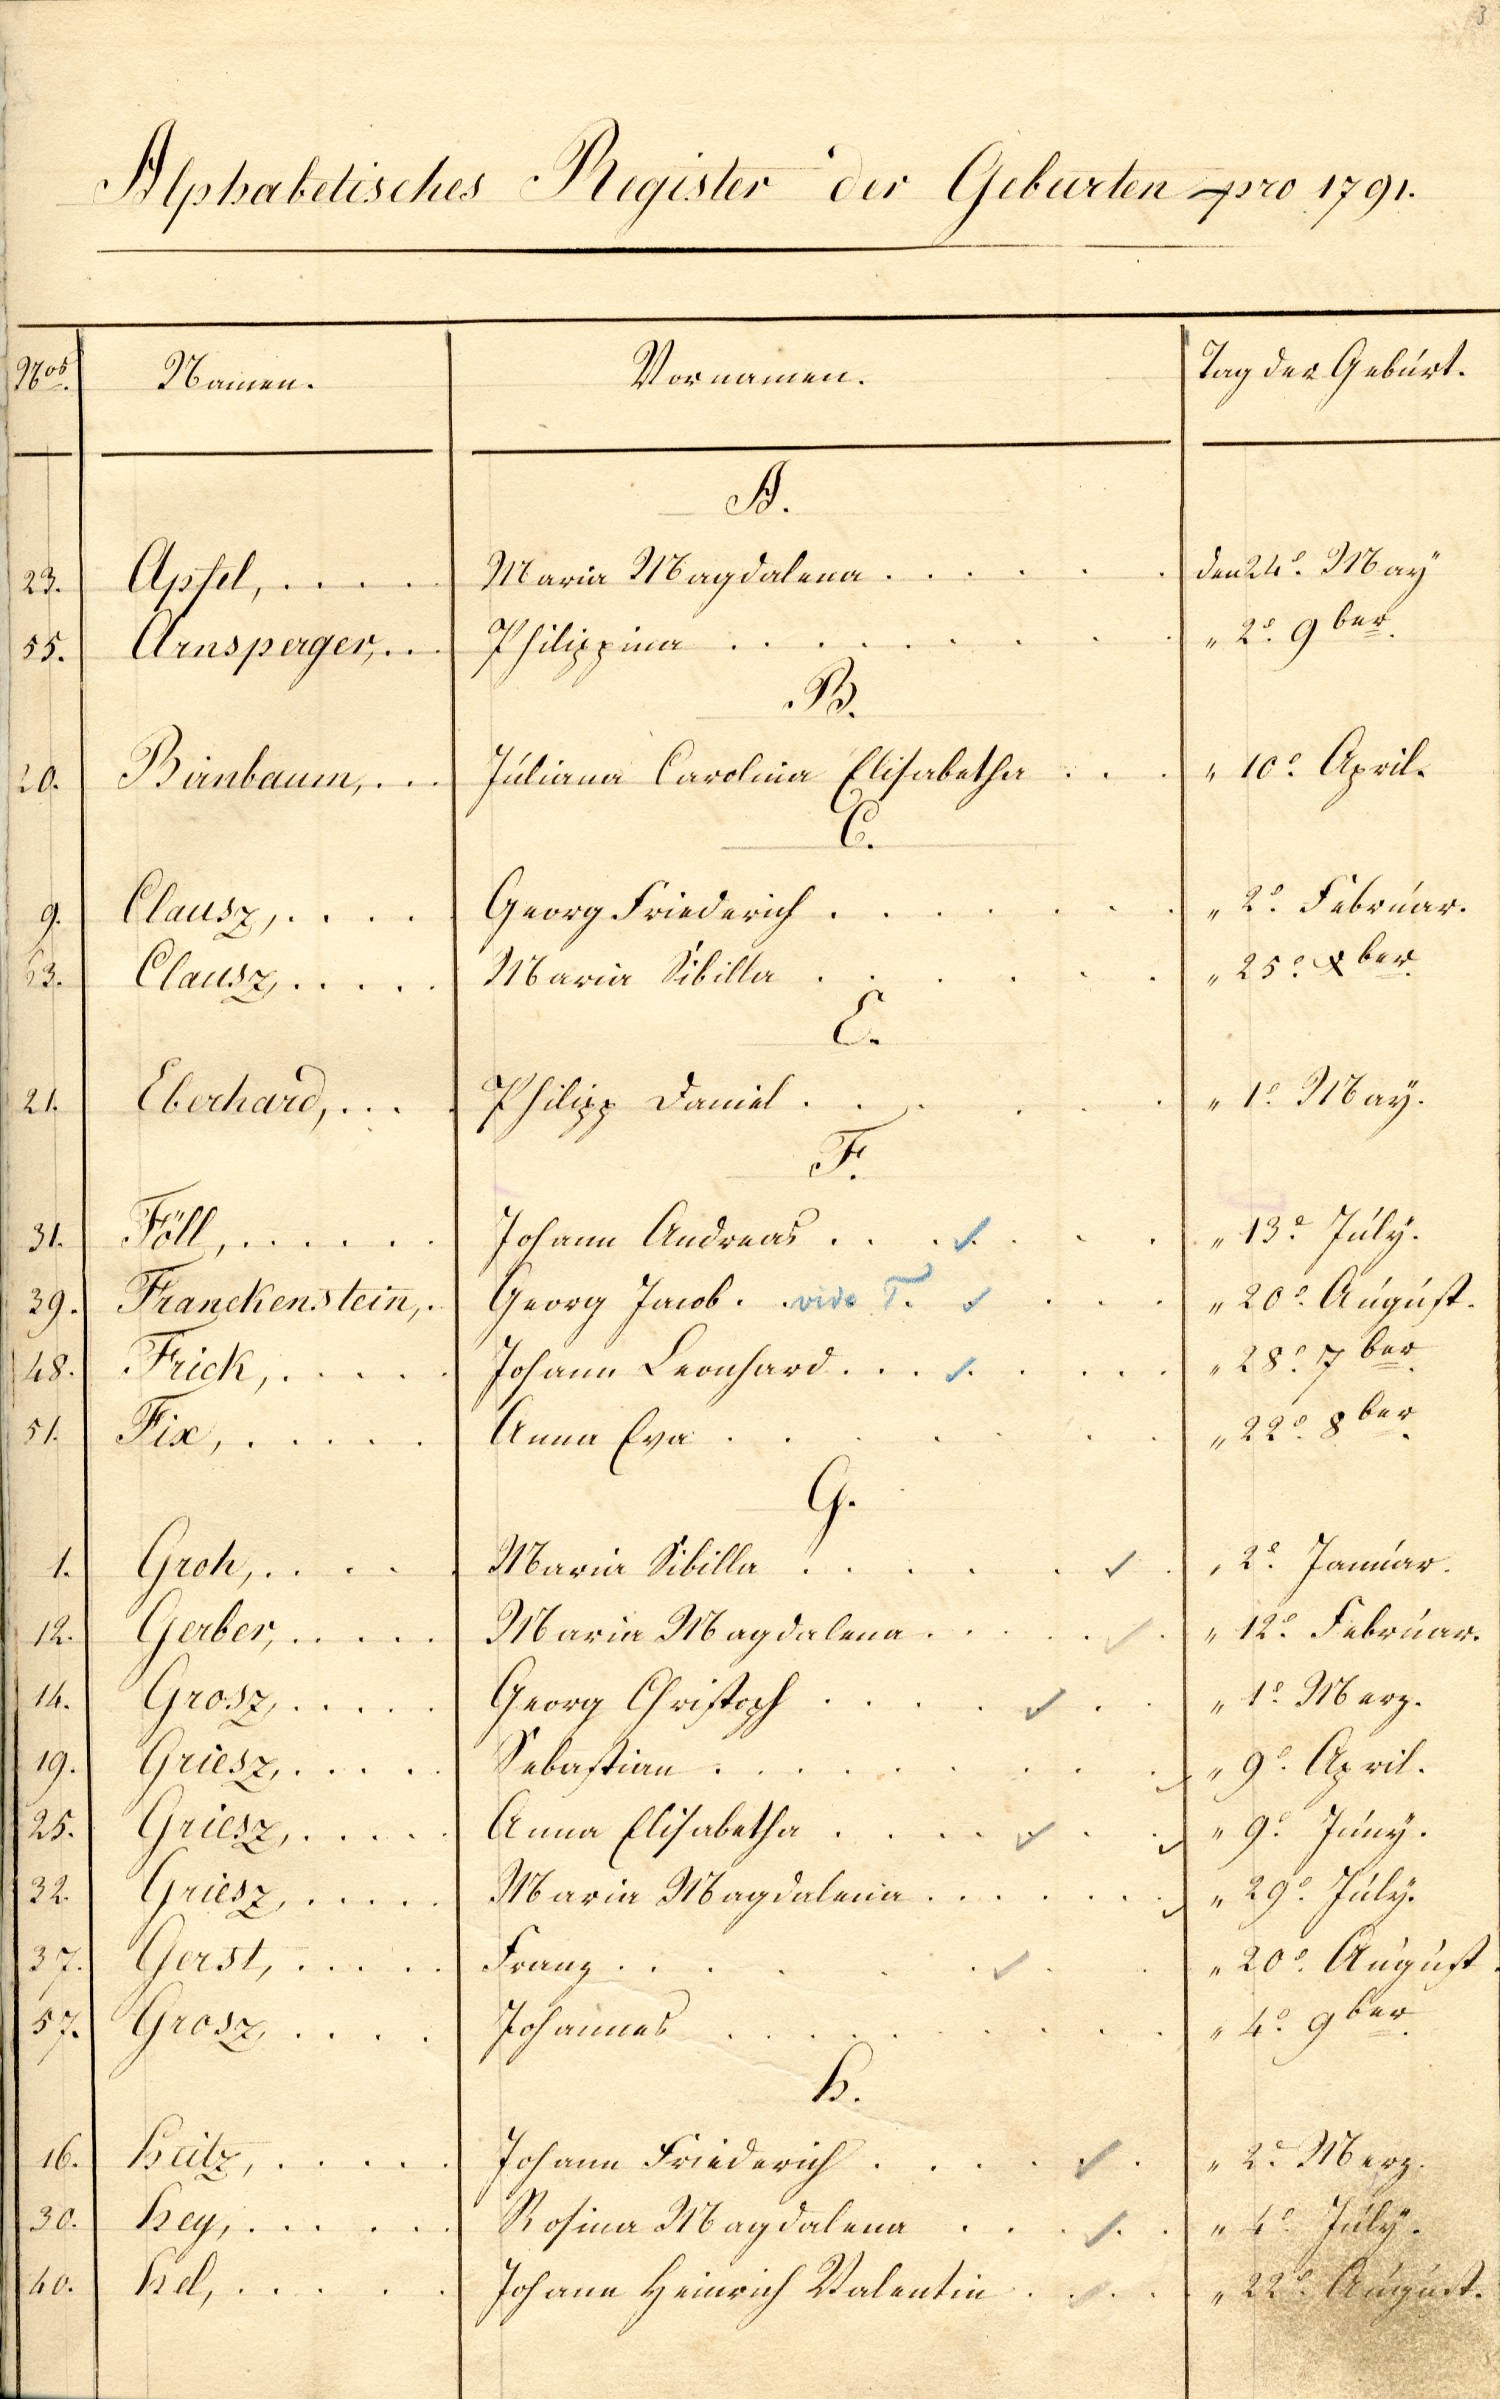 3
Alphabetisches Register der Geburten pro 1791.
Nos. Namen. Vornamen. Tag der Geburt.
A.
23. Apfel, . . . . Maria Magdalena . . . . . . den 24e. May
55. Arnsperger, . . . Philippina . . . . . . . „ 2e. 9ber.
B.
20. Birnbaum, . . . Juliana Carolina Elisabetha . . . „ 10e. April.
C.
9. Clausz, . . . . Georg Friederich . . . . . . . „ 2e. Februar.
63. Clausz, . . . . . Maria Sibilla . . . . . . „ 25e. Xber.
E.
21. Eberhard, . . . . Philipp Daniel . . . . . . „ 1e. May.
F.
31. Föll, . . . . . . Johann Andreas . . . ✓ . . . „ 13e. July.
39. Franckenstein, . Georg Jacob . . vide T. ✓ . . . „ 20e. August.
48. Frick, . . . . . Johann Leonhard . . . ✓ . . . . „ 28e. 7ber.
51. Fix, . . . . . Anna Eva . . . . . . . „ 22e. 8ber.
G.
1. Groh, . . . . . Maria Sibilla . . . . . ✓ . „ 2e. Januar.
12. Gerber, . . . . . Maria Magdalena . . . . ✓ . „ 12e. Februar.
14. Grosz, . . . . . Georg Christoph . . . . ✓ . . „ 1e. Merz.
19. Griesz, . . . . . Sebastian . . . . . . . . „ 9e. April.
25. Griesz, . . . . . Anna Elisabetha . . . . ✓ . . „ 9e. Juny.
32. Griesz, . . . . . Maria Magdalena . . . . . . „ 29e. July.
37. Gerst, . . . . . Franz . . . . . . ✓ . . „ 20e. August.
57. Grosz, . . . . Johannes . . . . . . . . . „ 4e. 9ber.
H.
16. Heitz, . . . . . Johann Friederich . . . . ✓ . „ 2e. Merz.
30. Hey, . . . . . . Rosina Magdalena . . . ✓ . . „ 4e. July.
40. Hel, . . . . . Johann Heinrich Valentin . . ✓ . . „ 22e. August.